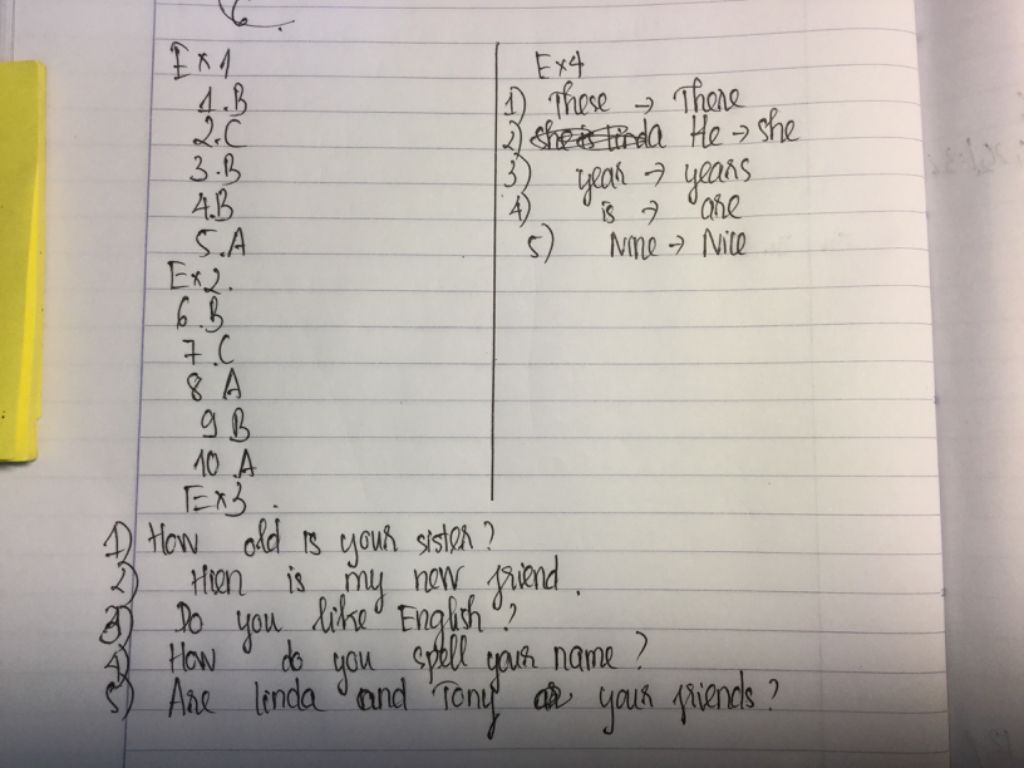 6.
Ex 1
1.B
2.C
3.B
4.B
5.A
Ex2.
6.B
7.C
8 A
9 B
10.A
Ex3.
Ex4
1) These → There
2) she is linda He → she
3) year → years
4) is → are
5) Nine → Nice
1) How old is your sister?
2) Hien is my new friend.
3) Do you like English?
4) How do you spell your name?
5) Are linda and Tony your friends?